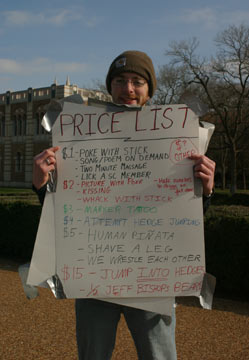 PRICE LIST
$1 - POKE WITH STICK
- SONG/POEM ON DEMAND
- TWO MINUTE MASSAGE
- LICK A SG MEMBER
$2 - PICTURE WITH POKE
- KISSING
- WHACK WITH STICK
$3 - MARKER TATOO
$4 - ATTEMPT HEDGE JUMPING
$5 - HUMAN PIÑATA
- SHAVE A LEG
- WE WRESTLE EACH OTHER
$15 - JUMP INTO HEDGE
- ½ JEFF BISHOPS BEARD
$?
OTHER